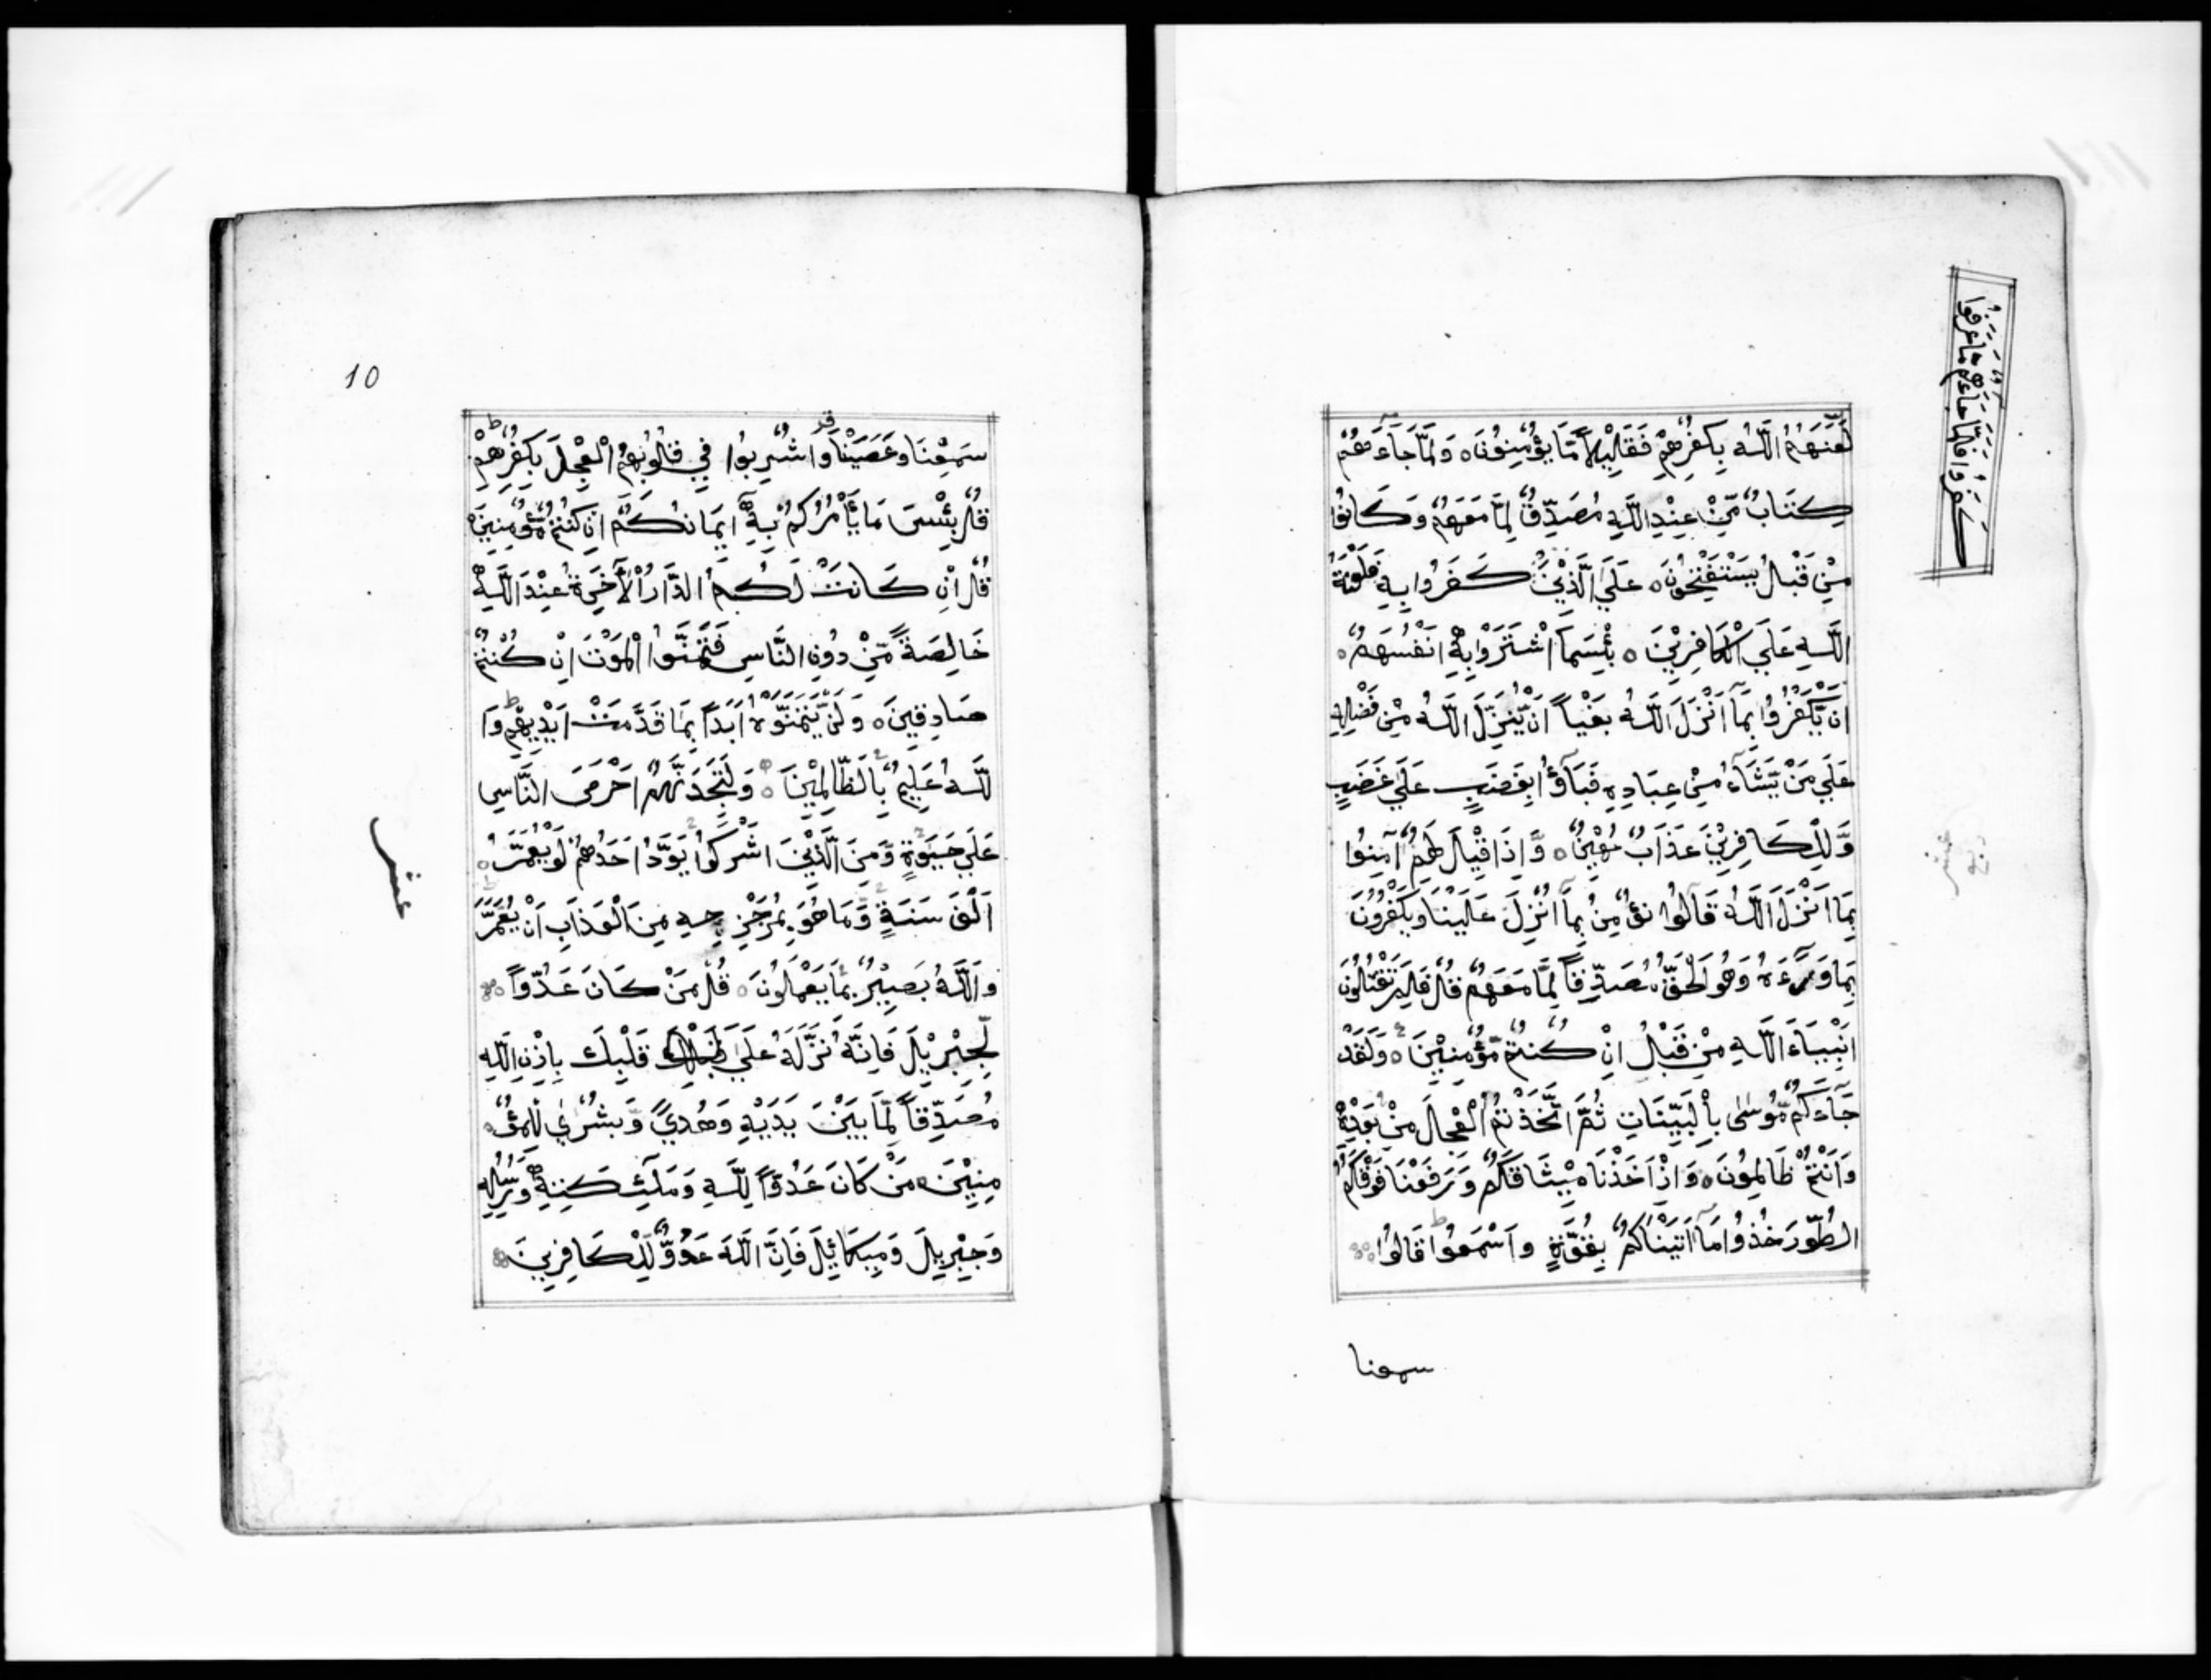 لَعَنَهُمُ اللَّهُ بِكُفْرِهِمْ فَقَلِيْلاً مَّا يُؤْمِنُوْنَ ۝ وَلَمَّا جَآءَهُمْ
كِتَابٌ مِّنْ عِنْدِ اللَّهِ مُصَدِّقٌ لِمَّا مَعَهُمْ وَكَانُوْا
مِنْ قَبْلُ يَسْتَفْتِحُوْنَ ۝ عَلَى الَّذِيْنَ كَفَرُوا بِهِ فَلَعْنَةُ
اللَّهِ عَلَى الْكَافِرِيْنَ ۝ بِئْسَمَا اشْتَرَوْا بِهِ اَنْفُسَهُمْ ۝
اَنْ يَّكْفُرُوْا بِمَآ اَنْزَلَ اللَّهُ بَغْياً اَنْ يُّنَزِّلَ اللَّهُ مِنْ فَضْلِهِ
عَلَى مَنْ يَّشَآءُ مِنْ عِبَادِهِ فَبَآؤُا بِغَضَبٍ عَلَى غَضَبٍ
وَّلِلْكَافِرِيْنَ عَذَابٌ مُّهِيْنٌ ۝ وَّاِذَا قِيْلَ لَهُمْ آمِنُوْا
بِمَا اَنْزَلَ اللَّهُ قَالُوْا نُؤْمِنُ بِمَآ اُنْزِلَ عَلَيْنَا وَيَكْفُرُوْنَ
بِمَا وَرَآءَهُ وَهُوَ الْحَقُّ مُصَدِّقاً لِّمَا مَعَهُمْ قُلْ فَلِمَ تَقْتُلُوْنَ
اَنْبِيَآءَ اللَّهِ مِنْ قَبْلُ اِنْ كُنْتُمْ مُّؤْمِنِيْنَ ۝ وَلَقَدْ
جَآءَكُمْ مُّوْسٰى بِالْبَيِّنَاتِ ثُمَّ اتَّخَذْتُمُ الْعِجْلَ مِنْ بَعْدِهِ
وَاَنْتُمْ ظَالِمُوْنَ ۝ وَاِذْ اَخَذْنَا مِيْثَاقَكُمْ وَرَفَعْنَا فَوْقَكُمُ
الطُّوْرَ خُذُوْا مَآ اٰتَيْنَاكُمْ بِقُوَّةٍ وَاسْمَعُوْا قَالُوْا
سمعنا
كَفَرُوا فَلَمَّا جَآءَهُمْ مَّا عَرَفُوْا
10
سَمِعْنَا وَعَصَيْنَا وَاُشْرِبُوا فِي قُلُوْبِهِمُ الْعِجْلَ بِكُفْرِهِمْ
قُلْ بِئْسَ مَا يَأْمُرُكُمْ بِهِ اِيْمَانُكُمْ اِنْ كُنْتُمْ مُّؤْمِنِيْنَ ۝
قُلْ اِنْ كَانَتْ لَكُمُ الدَّارُ الْاٰخِرَةُ عِنْدَ اللَّهِ
خَالِصَةً مِّنْ دُوْنِ النَّاسِ فَتَمَنَّوُا الْمَوْتَ اِنْ كُنْتُمْ
صَادِقِيْنَ ۝ وَلَنْ يَّتَمَنَّوْهُ اَبَداً بِمَا قَدَّمَتْ اَيْدِيْهِمْ وَا
للَّهُ عَلِيْمٌ بِالظَّالِمِيْنَ ۝ وَلَتَجِدَنَّهُمْ اَحْرَصَ النَّاسِ
عَلَى حَيٰوةٍ وَّمِنَ الَّذِيْنَ اَشْرَكُوْا يَوَدُّ اَحَدُهُمْ لَوْ يُعَمَّرُ ۝
اَلْفَ سَنَةٍ وَّمَا هُوَ بِمُزَحْزِحِهِ مِنَ الْعَذَابِ اَنْ يُعَمَّرَ
وَاللَّهُ بَصِيْرٌ بِمَا يَعْمَلُوْنَ ۝ قُلْ مَنْ كَانَ عَدُوّاً
لِّجِبْرِيْلَ فَاِنَّهُ نَزَّلَهُ عَلَى قَلْبِكَ بِاِذْنِ اللَّهِ
مُصَدِّقاً لِّمَا بَيْنَ يَدَيْهِ وَهُدًى وَّبُشْرٰى لِلْمُؤْ
مِنِيْنَ ۝ مَنْ كَانَ عَدُوّاً لِّلَّهِ وَمَلٰٓئِكَتِهِ وَرُسُلِهِ
وَجِبْرِيْلَ وَمِيْكَآئِيْلَ فَاِنَّ اللَّهَ عَدُوٌّ لِّلْكَافِرِيْنَ
عشر